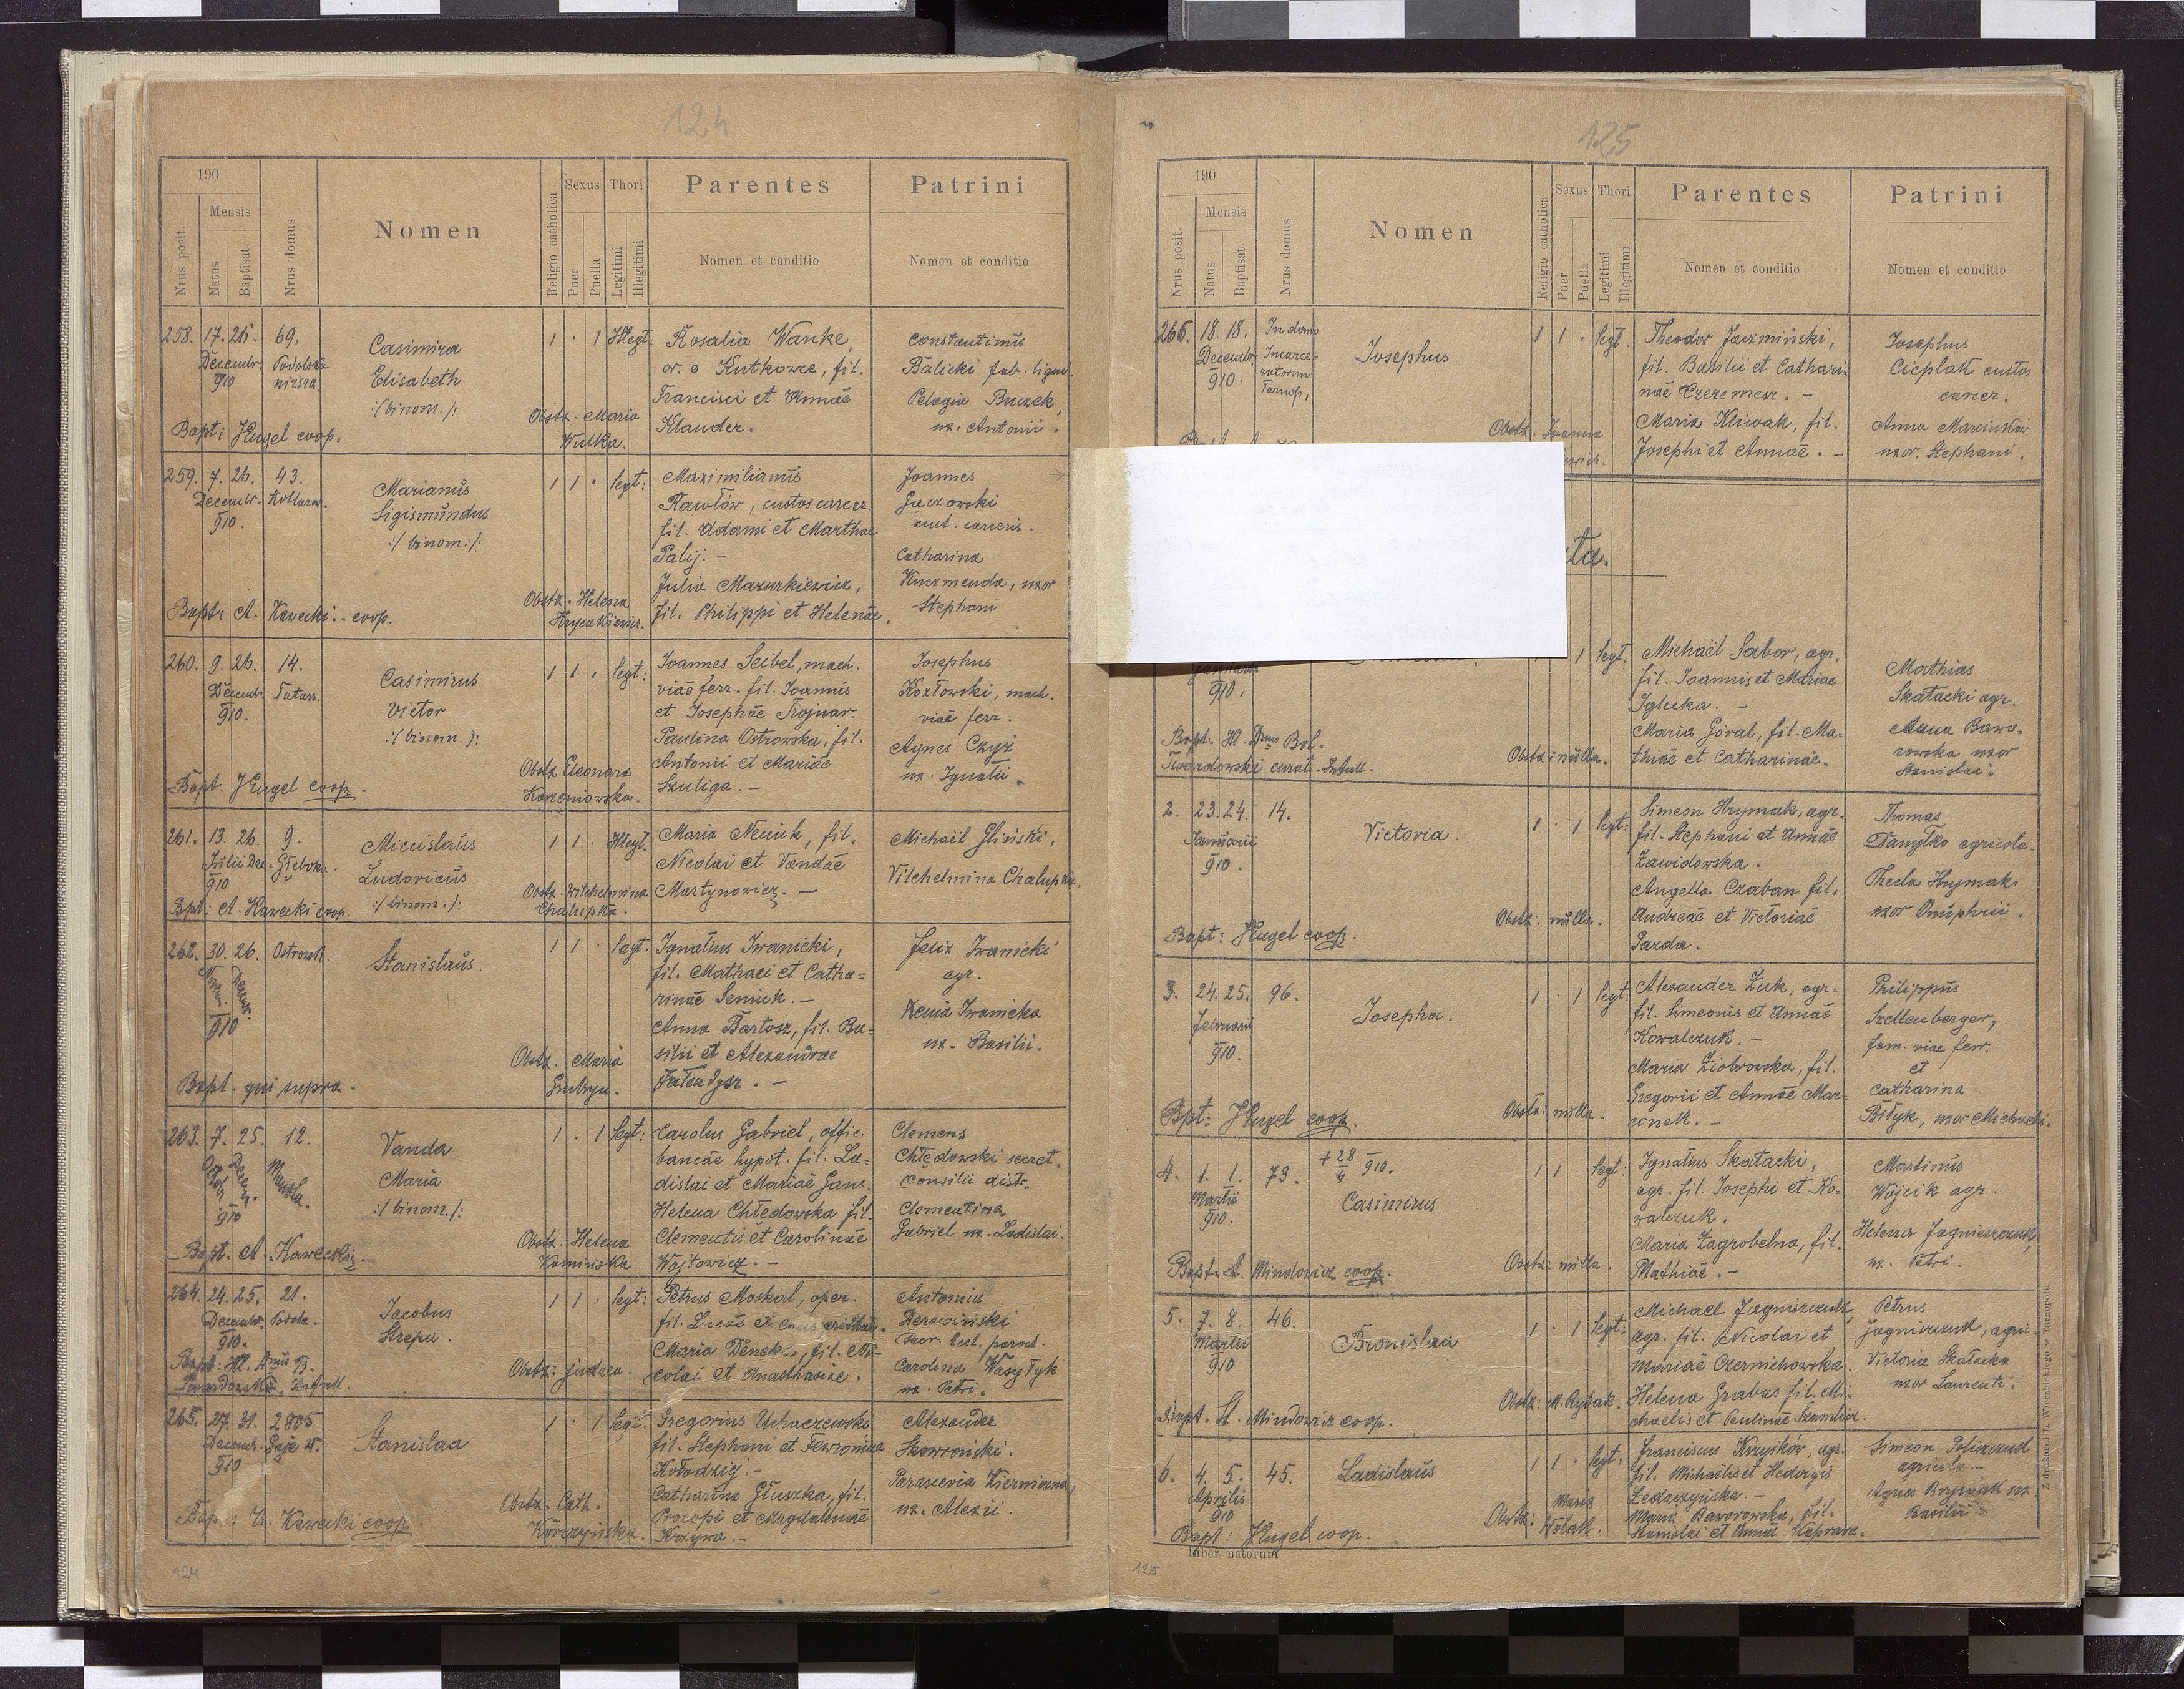 124
190
Nrus posit.
Mensis
Natus
Baptisat.
Nrus domus
Nomen
Religio catholica
Sexus
Puer
Puella
Thori
Legitimi
Illegitimi
Parentes
Nomen et conditio
Patrini
Nomen et conditio
258. 17. 26. 69.
Decembr. Podolska
910 niższa
Casimira
Elisabeth
:/binom./:
1 · 1 Illegt.
Rosalia Wanke,
or. e Kutkowce, fil.
Francisci et Annae
Klauder.
Constantinus
Balicki fab. lign.
Pelagia Buczek,
ux. Antonii.
Obstz. Maria
Wulka.
Bapt: JHugel coop.
259. 7. 26. 43.
Decembr. Kotlarew.
910.
Marianus
Sigismundus
:/binom:/:
1 1 · legt:
Maximilianus
Rawłów, custos carcer.
fil. Adami et Marthae
Palij. -
Julia Mazurkiewicz,
fil. Philippi et Helenae.
Joannes
Gaczowski
cust. carceris.
Catharina
Kuczmenda, uxor
Stephani
Obstz. Helena
Bapt: A. Kawecki. - coop.
260. 9. 26. 14.
Decembr. Tatars.
910.
Casimirus
Victor
:/binom.):
1 1 · legt:
Joannes Seibel, mach.
viae ferr. fil. Joannis
et Josephae Trojnar.
Paulina Ostrowska, fil.
Antonii et Mariae
Szuliga. -
Josephus
Kozłowski, mach.
viae ferr.
Agnes Czyż
ux. Ignatii.
Obstz. Eleonora
Korzeniowska.
Bapt. JHugel coop.
261. 13. 26. 9.
Julii Dec.
910
Miecislaus
Ludovicus
:/binom./:
1 1 · Illegt.
Maria Neuik, fil.
Nicolai et Vandae
Martynowicz. -
Michaël Gliński,
Vilchelmina Chalupka.
Obstz. Wilchelmina
Chalupka.
Bpt: A. Kawecki coop.
262. 30. 26. Ostrowsk.
910
Stanislaus.
1 1 · legt.
Ignatius Iwanicki,
fil. Mathaei et Catha=
rinae Seniuk. -
Anna Bartosz, fil. Ba=
silii et Alexandrae
Felix Iwanicki
agr.
Xenia Iwanicka
ux. Basilii.
Obstz. Maria
Bapt. qui supra.
263. 7. 25. 12.
910
Vanda
Maria
:/binom./:
1 · 1 legt:
Carolus Gabriel, offic.
bancae hypot. fil. La=
dislai et Mariae Gans.
Helena Chłedowska fil.
Clementis et Carolinae
Wojtowicz. -
Clemens
Chłedowski secret.
Consilii distr.
Clementina
Gabriel ux. Ladislai.
Obstz. Helena
Kamińska
Bapt. A. Kawecki.
264. 24. 25. 21.
Decembr. Podole.
910.
Jacobus
Szepa.
1 1 · legt:
Petrus Moskal, oper.
Maria Denek, fil. Ni=
colai et Anasthasiae.
Antonius
Derowiński
Carolina Wasyłyk
ux. Petri.
Obstz: judaea.
Bapt: Ill. Dnus B.
Twardowski, Infull.
265. 27. 31. 2805
Decembr. Gaje W.
910
Stanislaa
1 · 1 legt:
Gregorius Uchaczewski
fil. Stephani et Fewroniae
Kołodziej. -
Catharina Głuszka, fil.
Procopi et Magdalenae
Alexander
Skowroński.
ux. Alexii.
Obstz. Cath.
Korczyńska.
Kawecki coop.
124
125
190
Nrus posit.
Mensis
Natus
Baptisat.
Nrus domus
Nomen
Religio catholica
Sexus
Puer
Puella
Thori
Legitimi
Illegitimi
Parentes
Nomen et conditio
Patrini
Nomen et conditio
266. 18. 18. In domo
Decembr. Incarce-
910. ratorum
Tarnop.
Josephus
1 1 · legt.
Theodor Jaczmiński,
fil. Basilii et Cathari=
nae Czeremesz. -
Maria Kliwak, fil.
Josephi et Annae. -
Josephus
Cieplak custos
carcer.
Anna Marcinków
uxor. Stephani.
Obstz. Joanna
ta.
Januarii
910.
1 legt.
Michaël Sabor, agr.
fil. Joannis et Mariae
Iglecka. -
Maria Góral, fil. Ma-
thiae et Catharinae.
Mathias
Skatacki agr.
Anna Bawo-
rowska uxor
Stanislai.
Bapt. Ill. Dnus Bol.
Twardowski curat. Infull.
Obstz: nulla.
2. 23. 24. 14.
Januarii
910.
Victoria.
1 · 1 legt:
Simeon Hrymak, agr.
fil. Stephani et Annae
Zawidowska.
Angella Czaban fil.
Andreae et Victoriae
Gazda.
Thomas
Danyłko agricola.
Thecla Hrymak
uxor Onuphrii.
Obstz: nulla.
Bapt: JHugel coop.
3. 24. 25. 96.
Februarii
910.
Josepha.
1 · 1 legt:
Alexander Zuk, agr.
fil. Simeonis et Annae
Kowalczuk. -
Maria Ziobrowska, fil.
Gregorii et Annae Mar-
conek. -
Philippus
Szellenberger,
fam. viae ferr.
et
Catharina
Biłyk, uxor Michaeli.
Obstz: nulla.
Bpt: JHugel coop.
4. 1. 1. 73.
Martii
910.
+ 28/4 910.
Casimirus
1 1 · legt:
Ignatius Skatacki,
agr. fil. Josephi et Ko-
walczuk.
Maria Zagrobelna, fil.
Mathiae. -
Martinus
Wójcik agr.
Helena Jagnieszczuk,
ux. Petri.
Obstz: nulla.
Bapt. S. Mindowicz coop.
5. 7. 8. 46.
Martii
910
Bronislaa
1 · 1 legt:
Michael Jagniszczuk,
agr. fil. Nicolai et
Mariae Czernichowska.
Helena Grabas fil. Mi-
chaelis et Paulinae
Petrus
Jagniszczuk, agri-
Victoria Skatacka
uxor Laurenti.
Obstz: M. Rybak.
Bapt. St. Mindowicz coop.
6. 4. 5. 45.
Aprilis
910
Ladislaus
1 1 · legt:
Franciscus Krzyśków, agr.
fil. Michaelis et Hedvigis
Maria Baworowska, fil.
Stanislai et Annae Kaprara.
Simeon Poliszczuk
agricola -
Agnes Brymak ux.
Basilii
Obstz: Maria
Wołak.
Bapt: JHugel coop.
Liber natorum
125
Z drukarni L. Wierzbickiego w Tarnopolu.